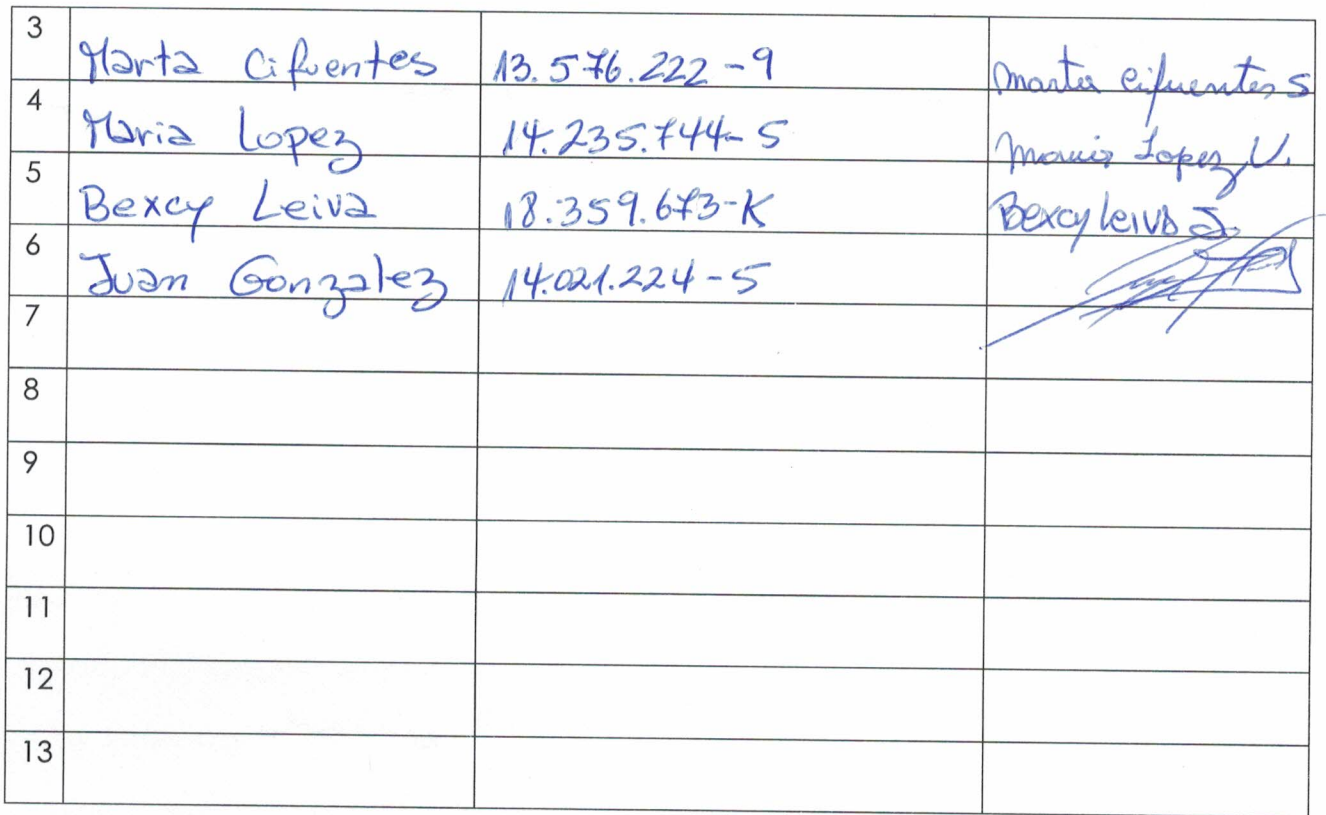 3 Marta Cifuentes 13.576.222-9 Marta Cifuentes S
4 Maria Lopez 14.235.744-5 Maria Lopez V.
5 Bexcy Leiva 18.359.673-K Bexcy Leiva J.
6 Juan Gonzalez 14.021.224-5
7
8
9
10
11
12
13